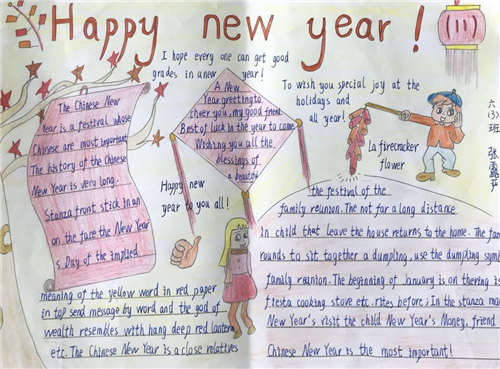 Happy new year!
I hope every one can get good
grades in a new year!
The Chinese New
Year is a festival whose
Chinese are most important
The history of the Chinese
New Year is very long.
Stanza front stick in an
on the face the New Year
s Day of the implied
meaning of the yellow word in red paper
in top send message by word and the god of
wealth resembles with hang deep red lantern
etc. The Chinese New Year is a close relatives
A New
Year greeting to
cheer you, my good friend.
Best of luck in the year to come
Wishing you all the
blessings of
a beautiful
Happy new
year to you all!
To wish you special joy at the
holidays and
all year!
La firecracker
flower
六(3)班
the festival of the
family reunion. The not far a long distance
in child that leave the house returns to the home. The fam
rounds to sit together a dumpling, use the dumpling symb
family reunion. The beginning of January is on thering is
fiesta cooking stove etc. rites before; In the stanza ma
New Year's visit the child New Year's Money, friend
Chinese New Year is the most important!